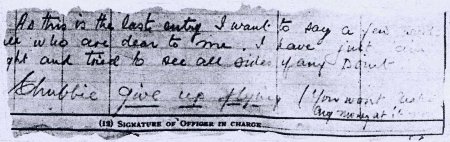 As this is the last entry I want to say a few
who are dear to me. I have just
and tried to see all sides of any Point
Chubbie give up flying (You wont make
any money at it
(12) SIGNATURE OF OFFICER IN CHARGE